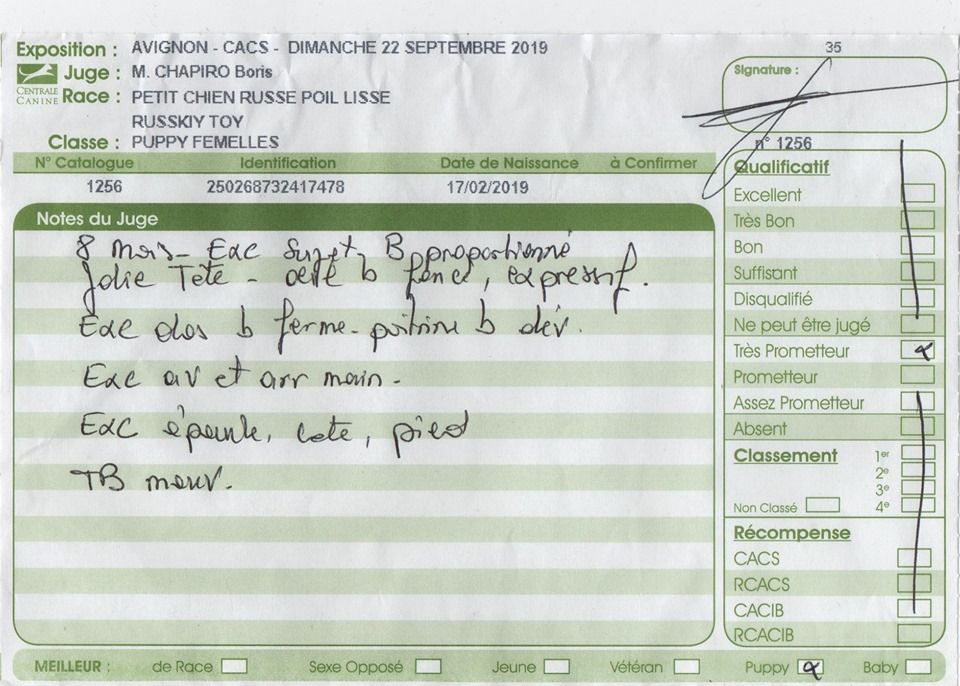 Exposition : AVIGNON - CACS - DIMANCHE 22 SEPTEMBRE 2019
35
CENTRALE CANINE
Juge : M. CHAPIRO Boris
Signature :
Race : PETIT CHIEN RUSSE POIL LISSE
RUSSKIY TOY
Classe : PUPPY FEMELLES
n° 1256
N° Catalogue Identification Date de Naissance à Confirmer
1256 250268732417478 17/02/2019
Notes du Juge
8 mois - Exc Sujet, B proportionné
Jolie Tete - b foncé, expressif.
Exc dos b ferme - poitrine b dév.
Exc av et arr main -
Exc épaule, cote, pied
TB mouv.
Qualificatif
Excellent
Très Bon
Bon
Suffisant
Disqualifié
Ne peut être jugé
Très Prometteur x
Prometteur
Assez Prometteur
Absent
Classement 1er
2e
3e
Non Classé 4e
Récompense
CACS
RCACS
CACIB
RCACIB
MEILLEUR : de Race Sexe Opposé Jeune Vétéran Puppy x Baby